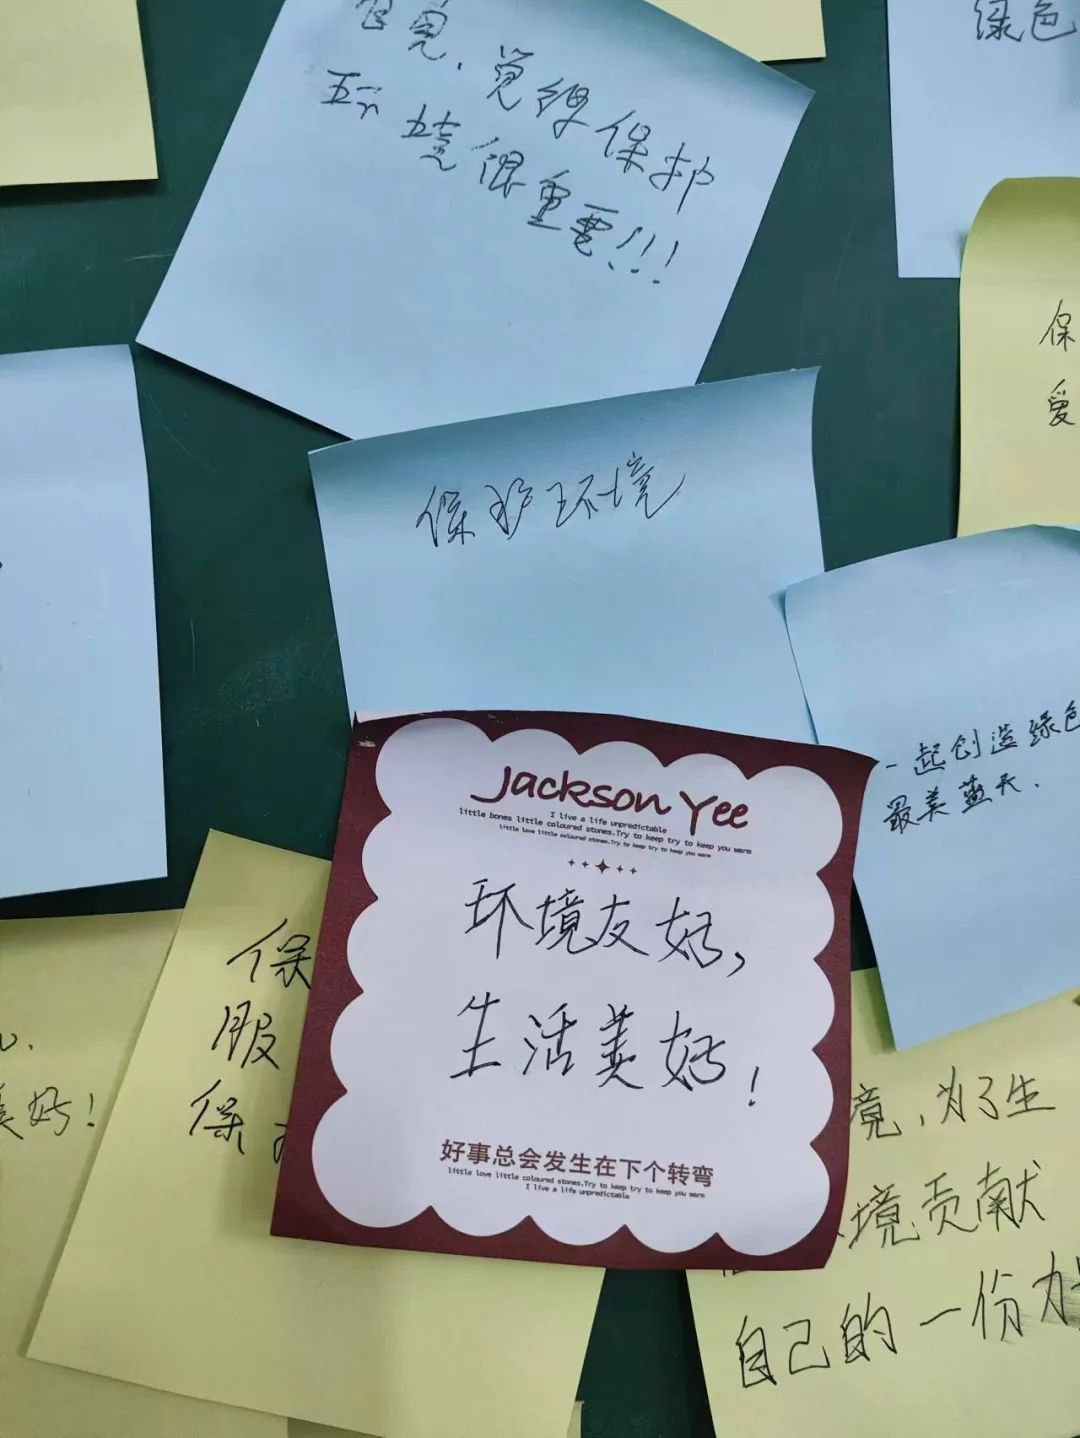 绿色
觉得保护
环境很重要!!!
保
爱
保护环境
一起创造绿色
最美蓝天.
Jackson Yee
I live a life unpredictable
little bones little coloured stones.Try to keep try to keep you warm
little love little coloured stones.Try to keep try to keep you warm
环境友好,
生活美好!
好事总会发生在下个转弯
little love little coloured stones.Try to keep try to keep you warm
I live a life unpredictable
保
服
保
美好!
境,为了生
境贡献
自己的一份力